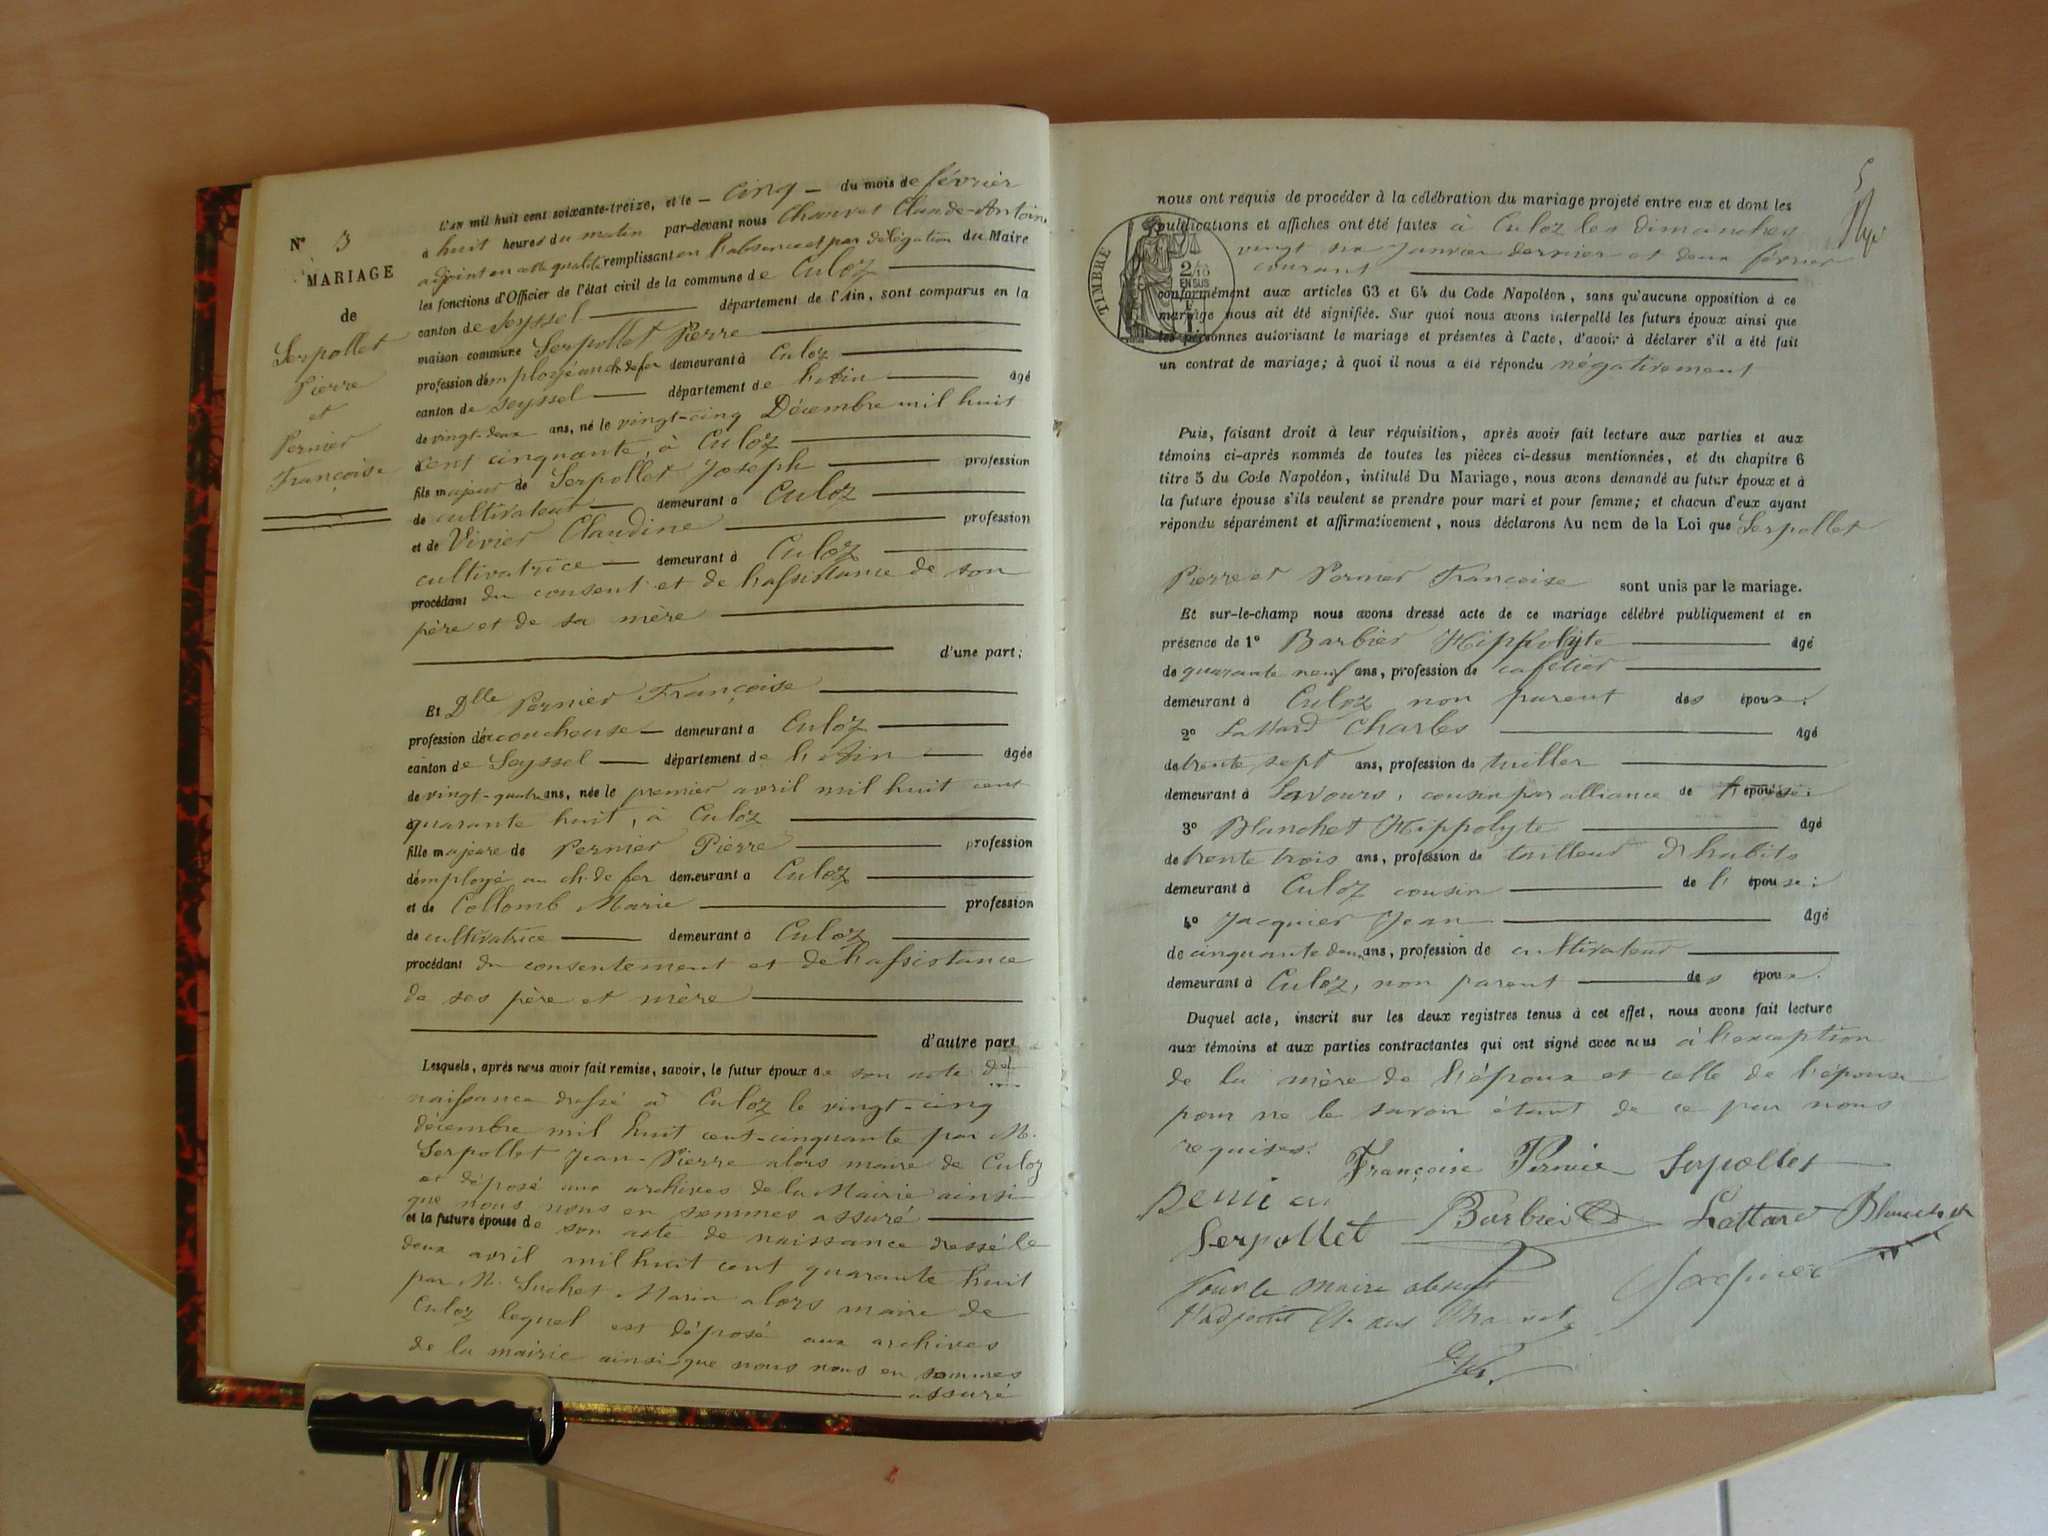 N° 3
MARIAGE
de
Serpollet
Pierre
et
Pernier
Françoise
L'an mil huit cent soixante-treize, et le — cinq — du mois de février
à huit heures du matin par-devant nous Chauvet Claude-Antoine
adjoint en cette qualité remplissant en l'absence et par délégation du Maire
les fonctions d'Officier de l'état civil de la commune de Culoz
canton de Seyssel département de l'Ain, sont comparus en la
maison commune Serpollet Pierre
profession d'employé au ch. de fer demeurant à Culoz
canton de Seyssel département de l'Ain âgé
de vingt-deux ans, né le vingt-cinq Décembre mil huit
cent cinquante, à Culoz
fils majeur de Serpollet Joseph profession
de cultivateur demeurant à Culoz
et de Vivier Claudine profession
cultivatrice demeurant à Culoz
procédant du consent et de l'assistance de son
père et de sa mère
d'une part;
Et Dlle Pernier Françoise
profession d'accoucheuse demeurant à Culoz
canton de Seyssel département de l'Ain âgée
de vingt-quatre ans, née le premier avril mil huit cent
quarante huit, à Culoz
fille majeure de Pernier Pierre profession
d'employé au ch. de fer demeurant à Culoz
et de Collomb Marie profession
de cultivatrice demeurant à Culoz
procédant du consentement et de l'assistance
de ses père et mère
d'autre part
Lesquels, après nous avoir fait remise, savoir, le futur époux de son acte de
naissance dressé à Culoz le vingt-cinq
décembre mil huit cent-cinquante par M.
Serpollet Jean-Pierre alors maire de Culoz
et déposé aux archives de la Mairie ainsi
que nous nous en sommes assuré
et la future épouse de son acte de naissance dressé le
deux avril mil huit cent quarante huit
par M. Suchet Marin alors maire de
Culoz lequel est déposé aux archives
de la mairie ainsi que nous nous en sommes
assuré
5
TIMBRE
2/10
EN SUS
nous ont requis de procéder à la célébration du mariage projeté entre eux et dont les
publications et affiches ont été faites à Culoz les dimanches
vingt six janvier dernier et deux février
courant
conformément aux articles 63 et 64 du Code Napoléon, sans qu'aucune opposition à ce
mariage nous ait été signifiée. Sur quoi nous avons interpellé les futurs époux ainsi que
les personnes autorisant le mariage et présentes à l'acte, d'avoir à déclarer s'il a été fait
un contrat de mariage; à quoi il nous a été répondu négativement
Puis, faisant droit à leur réquisition, après avoir fait lecture aux parties et aux
témoins ci-après nommés de toutes les pièces ci-dessus mentionnées, et du chapitre 6
titre 5 du Code Napoléon, intitulé Du Mariage, nous avons demandé au futur époux et à
la future épouse s'ils veulent se prendre pour mari et pour femme; et chacun d'eux ayant
répondu séparément et affirmativement, nous déclarons Au nom de la Loi que Serpollet
Pierre et Pernier Françoise sont unis par le mariage.
Et sur-le-champ nous avons dressé acte de ce mariage célébré publiquement et en
présence de 1° Barbier Hippolyte âgé
de quarante neuf ans, profession de cafetier
demeurant à Culoz non parent des époux.
2° Lattard Charles âgé
de trente sept ans, profession de tuillier
demeurant à Lavours, cousin par alliance de l'épouse:
3° Blanchet Hippolyte âgé
de trente trois ans, profession de tailleur d'habits
demeurant à Culoz cousin de l'épouse:
4° Jacquier Jean âgé
de cinquante deux ans, profession de cultivateur
demeurant à Culoz, non parent des époux.
Duquel acte, inscrit sur les deux registres tenus à cet effet, nous avons fait lecture
aux témoins et aux parties contractantes qui ont signé avec nous à l'exception
de la mère de l'époux et celle de l'épouse
pour ne le savoir étant de ce par nous
requises.
Françoise Pernier Serpollet
Serpollet Barbier Lattard Blanchet
Pour le maire absent Jacquier
L'adjoint